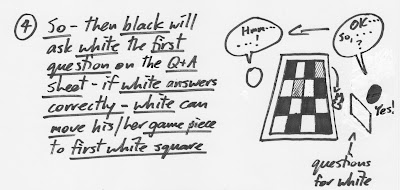 ④ So - then black will
ask white the first
question on the Q+A
sheet - if white answers
correctly - white can
move his/her game piece
to first white square
Hmm...
....!
OK...
So,..
..?
Yes!
questions
for white